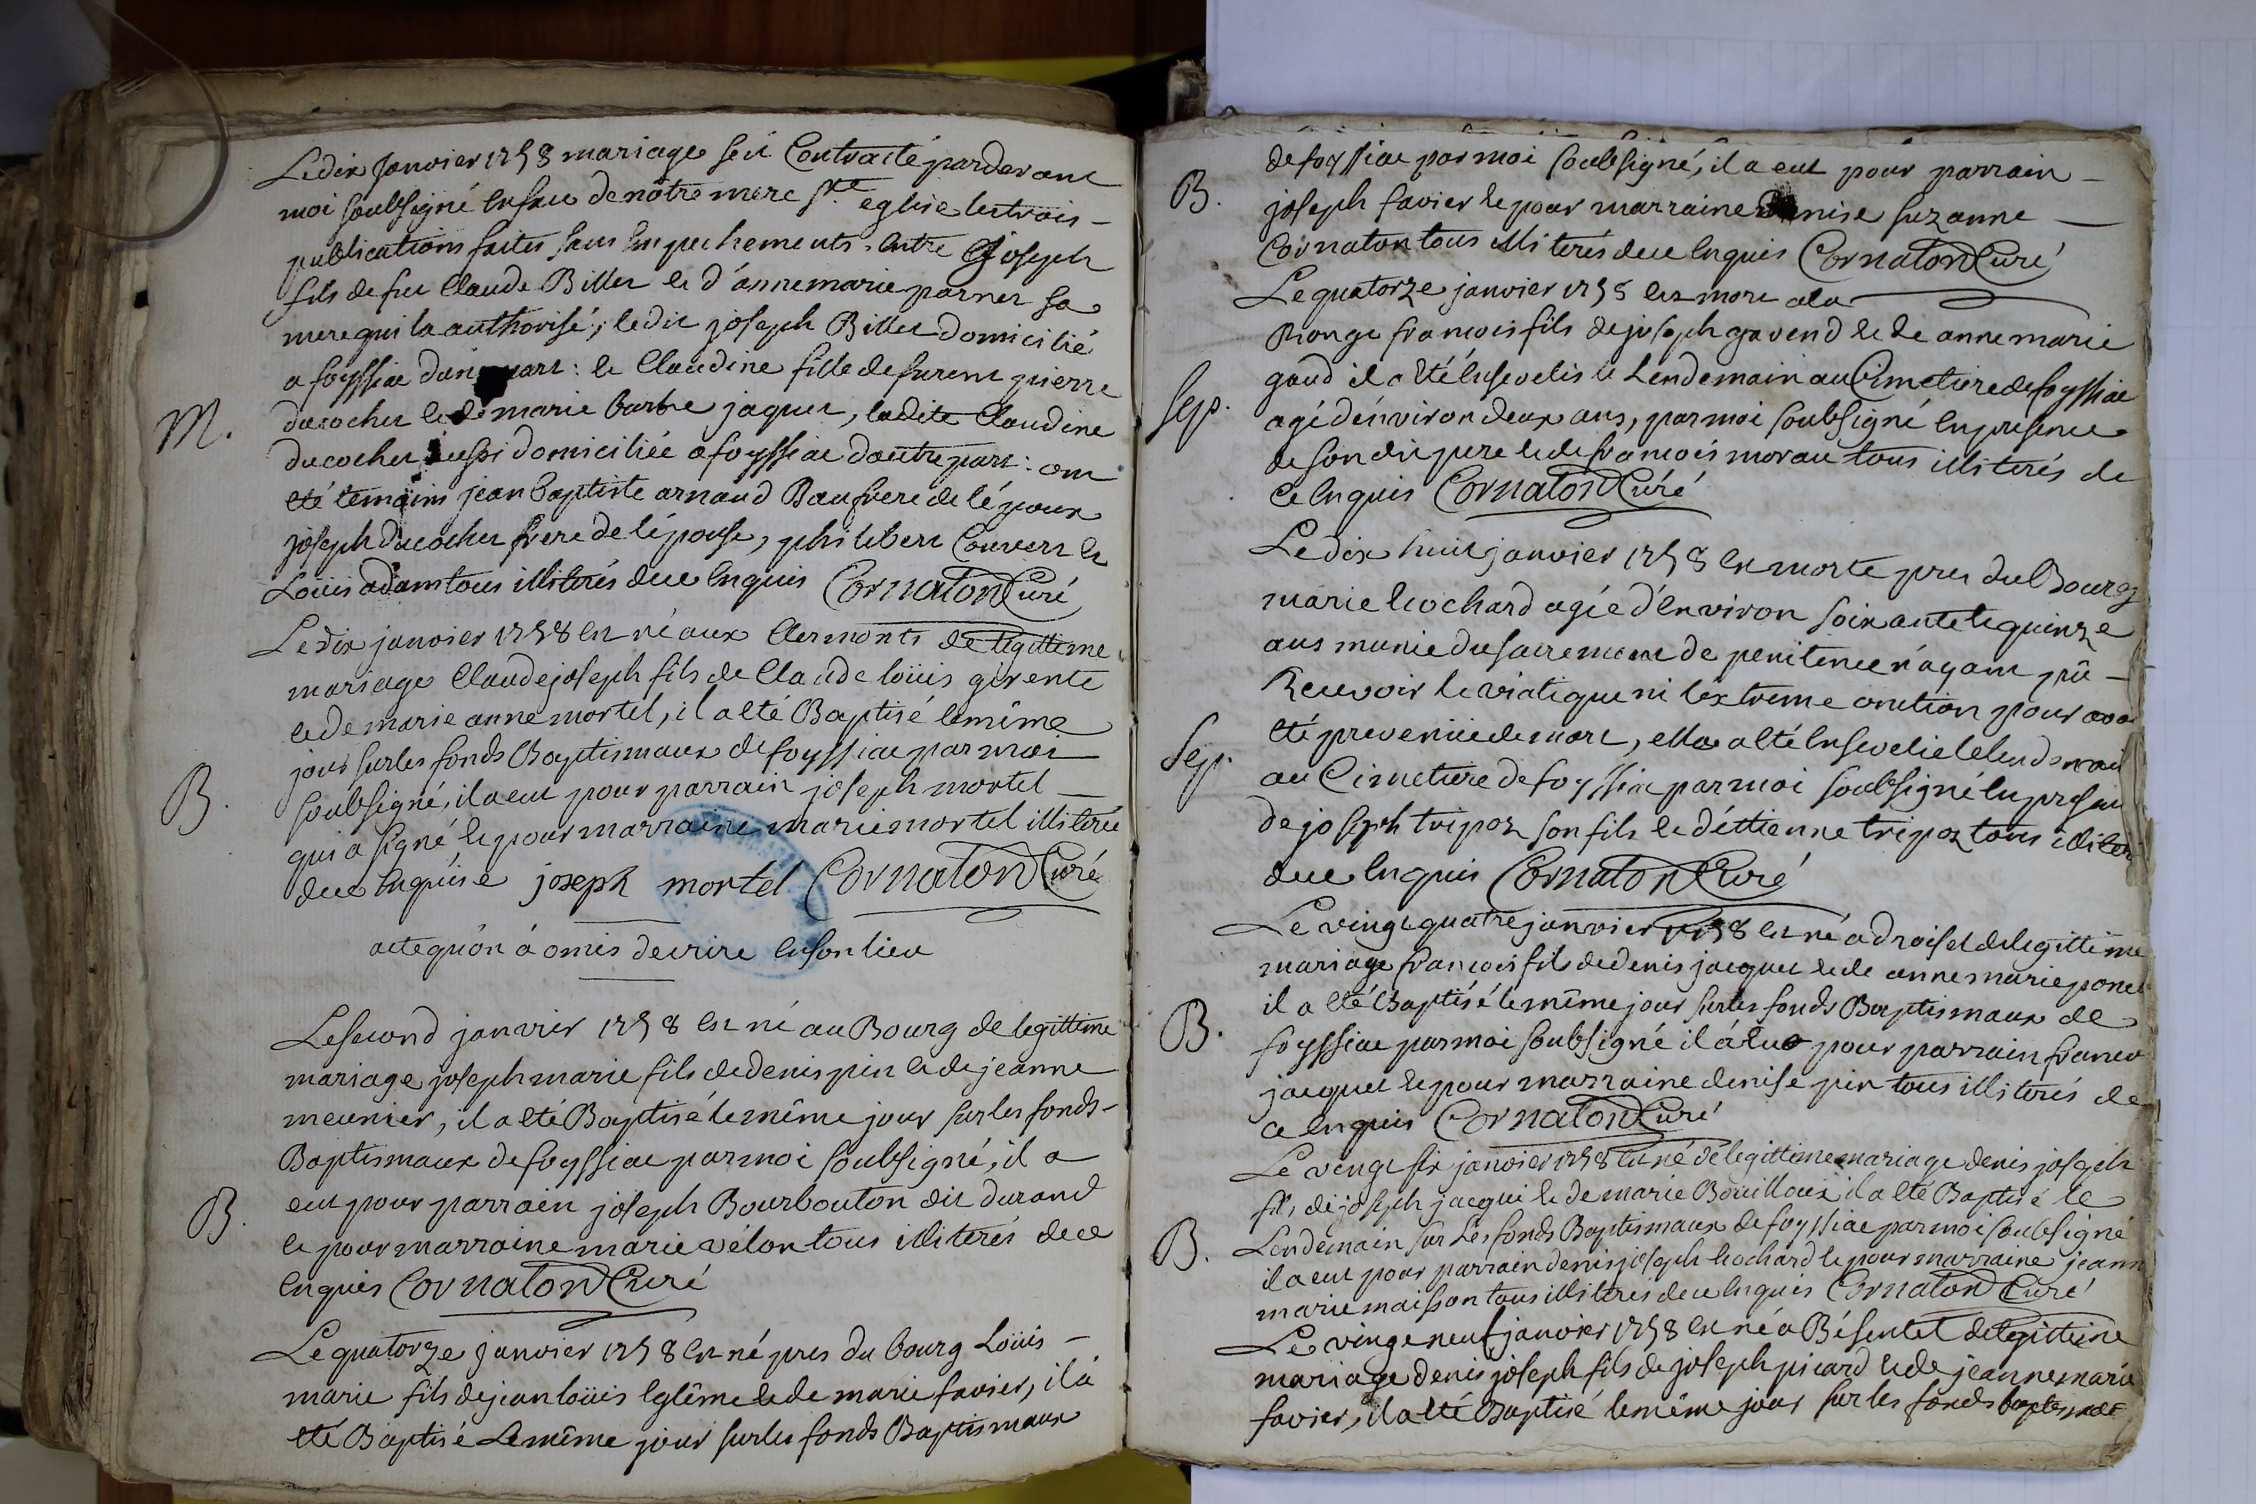 Le dix Janvier 1758 mariage s'est Contracté pardevant
moi soubsigné en face de nôtre mere Ste eglise les trois
publications faites sans Empechements entre Joseph
fils de feu Claude Billet et d'anne marie parnet sa
mere qui la authorisé; ledit joseph Billet domicilié
a foyssiac dune part: et Claudine fille de furent pierre
M.
ducochet et de marie barbe jaquet, ladite Claudine
ducochet aussi domiciliée a foyssiac dautre part: ont
eté temoins jean baptiste arnaud Baufrere de lépoux
joseph ducochet frere de lépouse, philibert Convert et
Loüis adam tous illiterés de ce enquis Cornaton Curé
Le dix janvier 1758 est né aux Clermonts de legittime
mariage Claude joseph fils de Claude loüis girente
et de marie anne mortel, il a eté Baptisé le même
jour sur les fonds Baptismaux de foyssiac par moi
B.
soubsigné, il a eut pour parrain joseph mortel
qui a signé et pour marraine marie mortel illiterée
de ce enquise joseph mortel Cornaton Curé
acte qu'on à omis decrire en son lieu
Le second janvier 1758 est né au Bourg de legittime
mariage joseph marie fils de denis pin et de jeanne
meunier, il a eté Baptisé le même jour sur les fonds
Baptismaux de foyssiac par moi soubsigné, il a
B.
eut pour parrain joseph Bourbouton dit durand
et pour marraine marie vélon tous illiterés de ce
enquis Cornaton Curé
Le quatorze janvier 1758 est né pres du bourg Loüis
marie fils de jean loüis Eglême et de marie favier, il à
eté Baptisé Le même jour sur les fonds Baptismaux
de foyssiac par moi soubsigné, il a eut pour parrain
B.
joseph favier et pour marraine denise suzanne
Cornaton tous illiterés de ce enquis Cornaton Curé
Le quatorze janvier 1758 est mort a la
Ronge francois fils de joseph gavend et de anne marie
gaud il a eté Ensevelis le Lendemain au Cimetiere de foyssiac
Sep.
agé dénviron deux ans, par moi soubsigné en presence
de son dit pere et de francois morau tous illiterés de
ce enquis Cornaton Curé
Le dix huit janvier 1758 est morte pres du Bourg
marie Cochard agée d'Environ soixante et quinze
ans munie du sacrement de penitence n'ayant pû
Recevoir le viatique ni lextreme onction pour avoi
eté prevenüe de mort, elle a eté Ensevelie le lendemain
Sep.
au Cimetiere de foyssiac par moi soubsigné en presen
de joseph tripoz son fils et d'éttienne tripoz tous illiter
de ce enquis Cornaton Curé
Le vingt quatre janvier 1758 est né a droiset de legittime
mariage francois fils de denis jacquet et de anne marie ponet
il a eté Baptisé le même jour sur les fonds Baptismaux de
B.
foyssiac par moi soubsigné il á eut pour parrain franco
jacquet et pour marraine denise pin tous illiterés de
ce enquis Cornaton Curé
Le vengt six janvier 1758 est né de legittime mariage denis joseph
fils de joseph jacqui et de marie Bouilloux il a eté Baptisé le
B.
Lendemain sur Les fonds Baptismaux de foyssiac par moi soubsigné
il a eut pour parrain denis joseph Cochard et pour marraine jeann
marie maisson tous illiterés de ce enquis Cornaton Curé
Le vingt neuf janvier 1758 est né a Bésentet de legittime
mariage denis joseph fils de joseph picard et de jeanne marie
favier, il a eté Baptisé le même jour sur les fonds baptismaux